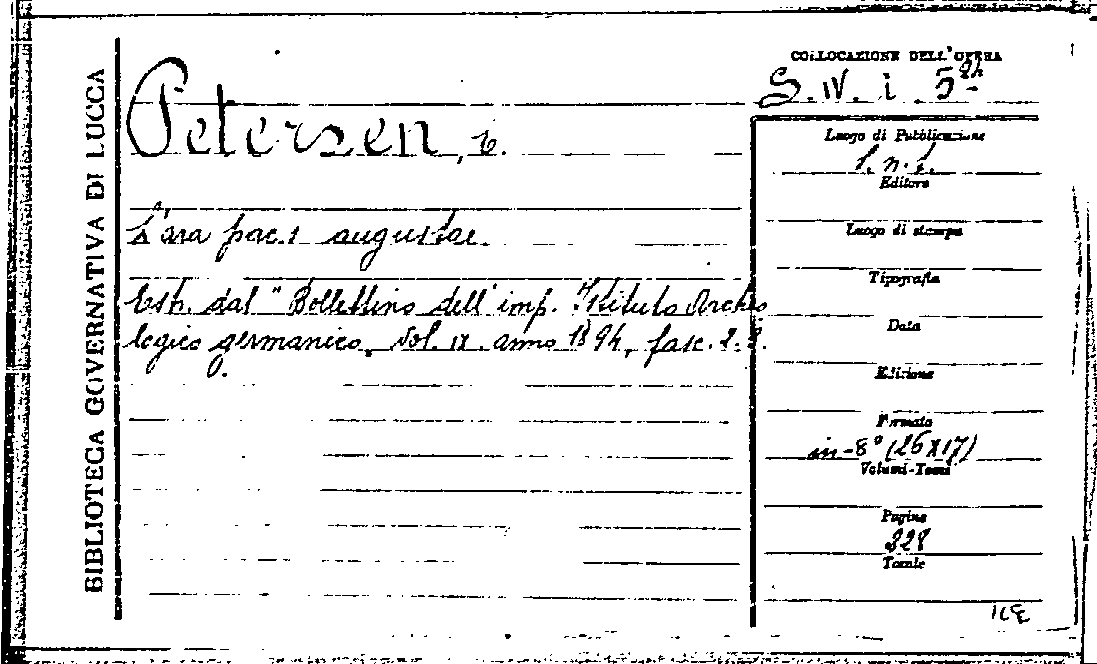 BIBLIOTECA GOVERNATIVA DI LUCCA
Petersen, E.
L'ara pacis augustae.
Estr. dal "Bollettino dell'imp. Istituto Archeo
logico germanico. Vol. IX. anno 1894, fasc. 2-3.
COLLOCAZIONE DELL'OPERA
S. IV. i. 5
Luogo di Pubblicazione
S. n. t.
Editore
Luogo di stampa
Tipografia
Data
Edizione
Formato
in-8° (26X17)
Volumi-Tomi
Pagine
228
Tavole